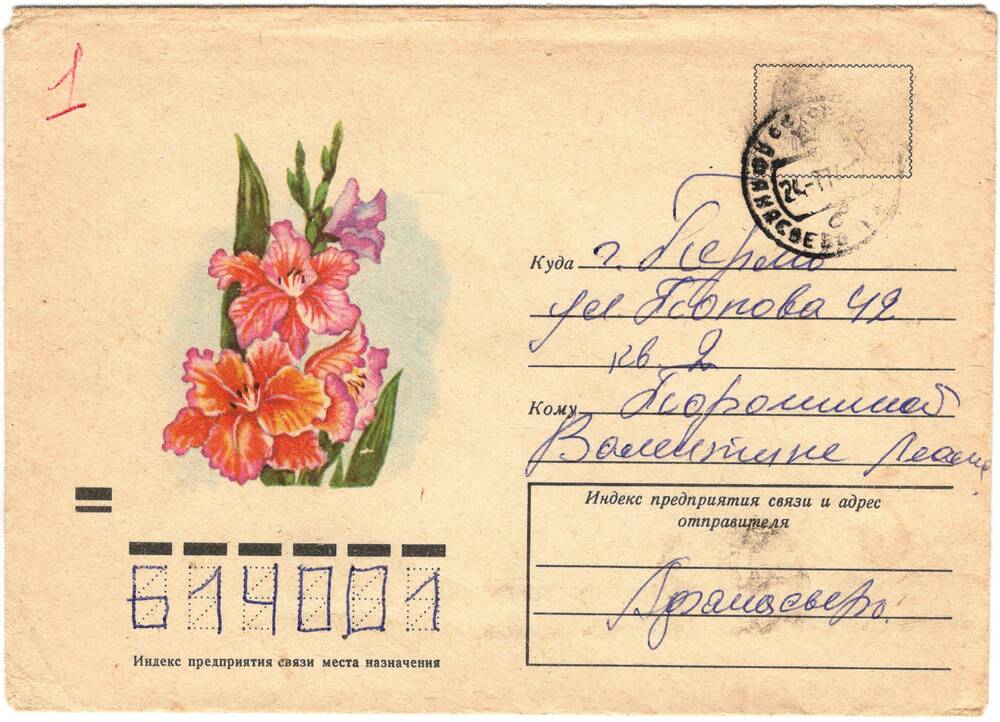 1
АФАНАСЬЕВО
24-11
Куда г. Пермь
ул Попова 42
кв. 2
Кому Порошиной
Валентине
Индекс предприятия связи и адрес
отправителя
Афанасьево.
614001
Индекс предприятия связи места назначения